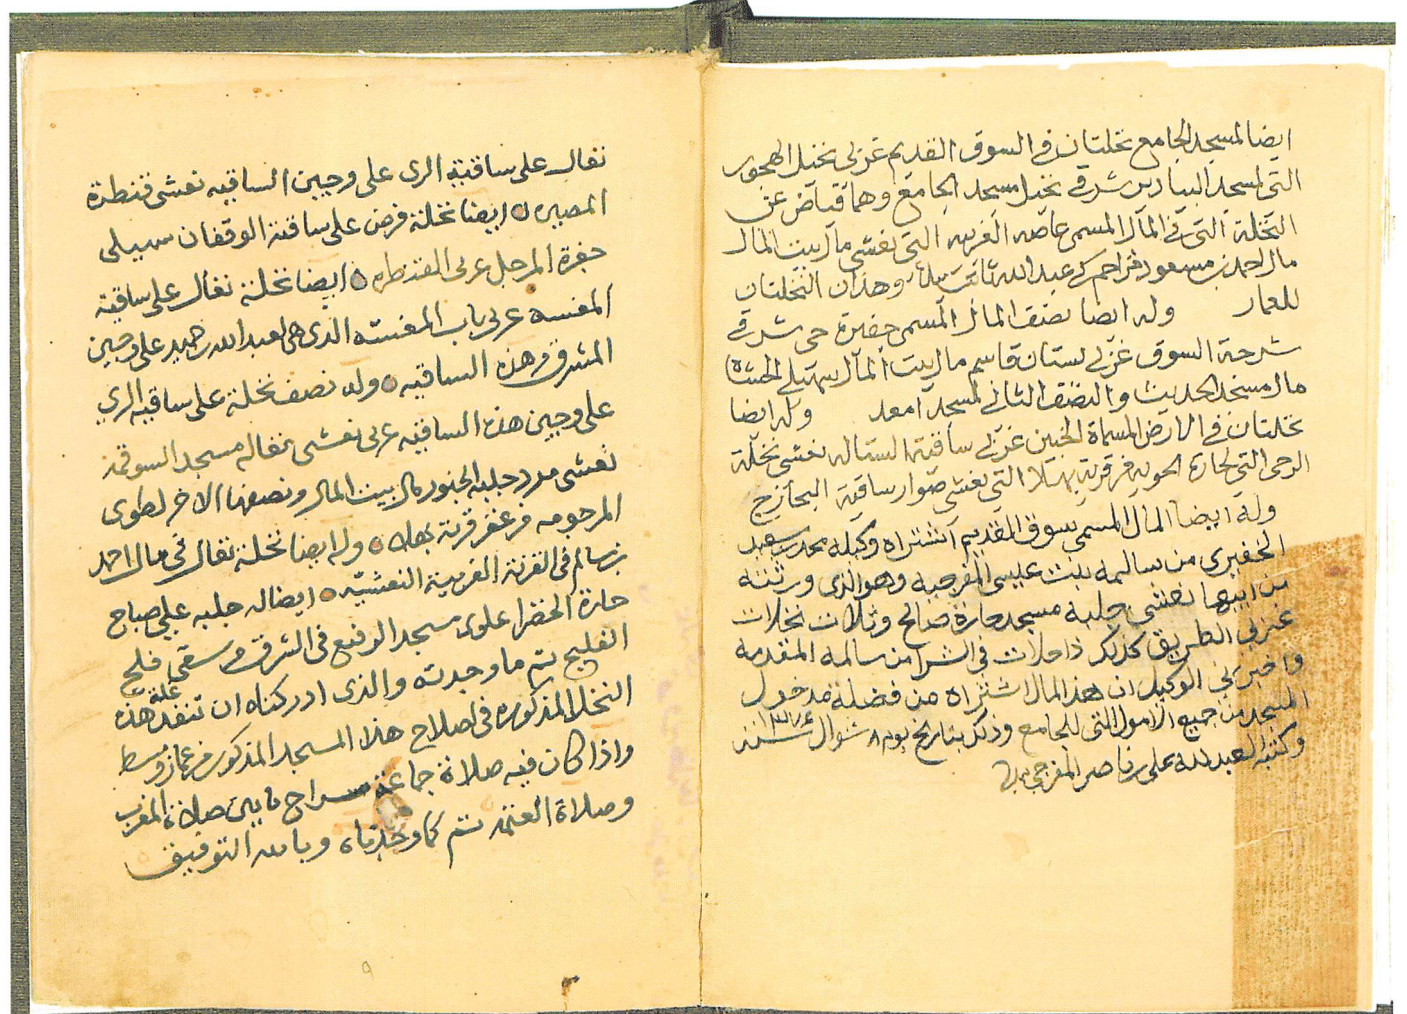 ايضا لمسجد الجامع نخلتان في السوق القديم غربي نخيل المهجور
التي لمسجد البيادير شرقي نخيل مسجد الجامع وهما قياض عن
النخلة التي في المال المسمى عاضد الغربيه التي نعشى مال بيت المال
مال احمد بن مسعود وهذان النخلتان
للعمار وله ايضا نصف المال المسمى حفيرة حى شرقي
شرجة السوق غربي بستان قاسم مال بيت المال سهيلي
مال مسجد الحديث والنصف الثاني لمسجد امعد وله ايضا
نخلتان في الارض المسماة الخبين غربي ساقية البستاله نعشى نخلة
الرحى التي لحارة من قرية بهلا التي نعشى صوار ساقية
وله ايضا المال المسمى سوق القديم اشتراه وكيله محمد بن سعيد
من سالمه بنت عيسى المفرجيه وهو الذي ورثته
من ابيها نعشى جلبة مسجد حارة صالح وثلاث نخلات
غربي الطريق كذلك داخلات في الشرا من سالمه المقدمه
واخبرني الوكيل ان هذا المال اشتراه من فضلة مدخول
المسجد من جميع الامول التي للجامع وذلك بتاريخ يوم ٨ شوال سنة
وكتبه العبد لله علي بن ناصر المفرجي بيده
نفال على ساقية الري على وجين الساقيه نعشى قنطرة
المصيره ايضا نخلة فرض على ساقية الوقفان سهيلي
حفرة المرجل غربي القنطره ايضا نخلة نفال على ساقية
المغسه غربي باب المغسه الذي هي لعبد الله بن حميد على وجين
المشرق من هذه الساقيه وله نصف نخلة على ساقية الري
على وجين هذه الساقيه غربي نعشى نفاله مسجد السوقمه
نعشى جلبة الخبور مال بيت المال ونصفها الاخر لطوى
المرحومه من عقر قرية بهلا وله ايضا نخلة نفال في مال احمد
بن سالم في القرنة الغربية النعشيه ايضا له جلبه علي صباح
حارة الخضرا علوى مسجد الرفيع في الشرق من سقي فلج
الفليج تم ما وجدته والذي ادركناه ان تنفد غلة هذه
النخل المذكوره في اصلاح هذا المسجد المذكور من عمار وبسط
واذا كان فيه صلاة جماعة سراج ما بين صلاة المغرب
وصلاة العتمه تم كما وجدناه وبالله التوفيق
٩